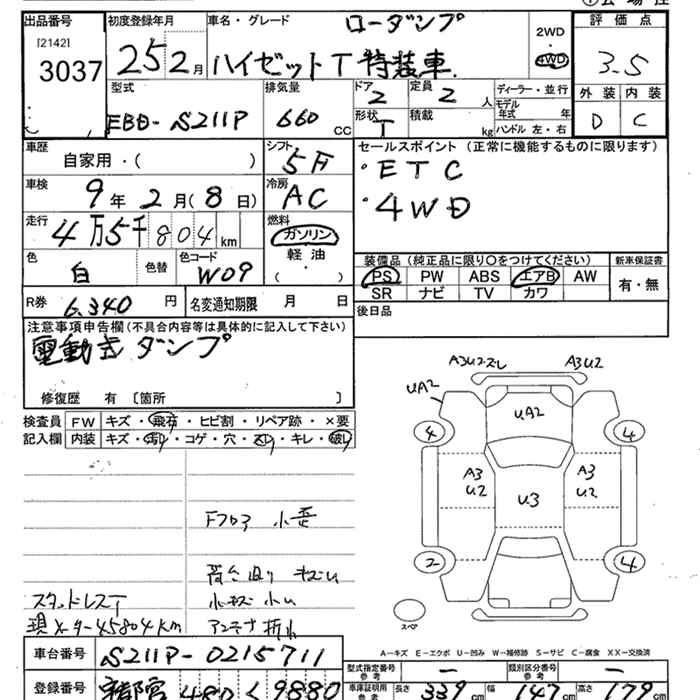 出品番号
[2142]
3037
初度登録年月
25 2月
車名・グレード
ローダンプ
ハイゼットT 特装車
2WD
・
4WD
評価点
3.5
外装 内装
D C
型式
EBD-S211P
排気量
660 cc
ドア
2
定員
2 人
形状
T
積載
kg
ディーラー・並行
モデル
年式 年
ハンドル 左・右
車歴
自家用・( )
シフト
5F
車検
9年 2月(8日)
冷房
AC
走行
4万5千804km
燃料
ガソリン
軽油
( ・ )
色
白
色替
色コード
W09
R券
6,340 円
名変通知期限 月 日
セールスポイント (正常に機能するものに限ります)
・ETC
・4WD
装備品 (純正品に限り○をつけてください)
PS PW ABS エアB AW
SR ナビ TV カワ
新車保証書
有・無
後日品
注意事項申告欄(不具合内容等は具体的に記入して下さい)
電動式ダンプ
修復歴 有 〔箇所 〕
検査員 FW キズ・飛石・ヒビ割・リペア跡・×要
記入欄 内装 キズ・汚れ・コゲ・穴・スレ・キレ・破レ
Fフロア 小歪
スタッドレスT
現メーター45804km
車台番号
S211P-0215711
登録番号
480 く 9880
A3U2ズレ
A3U2
UA2
UA2
4
4
A3
U2
U3
A3
U2
2
4
スペア
A-キズ E-エクボ U-凹み W-補修跡 S-サビ C-腐食 XX-交換済
型式指定番号
参考
―
類別区分番号
参考
―
車庫証明用
参考
長さ 339cm
幅 147cm
高さ 179cm